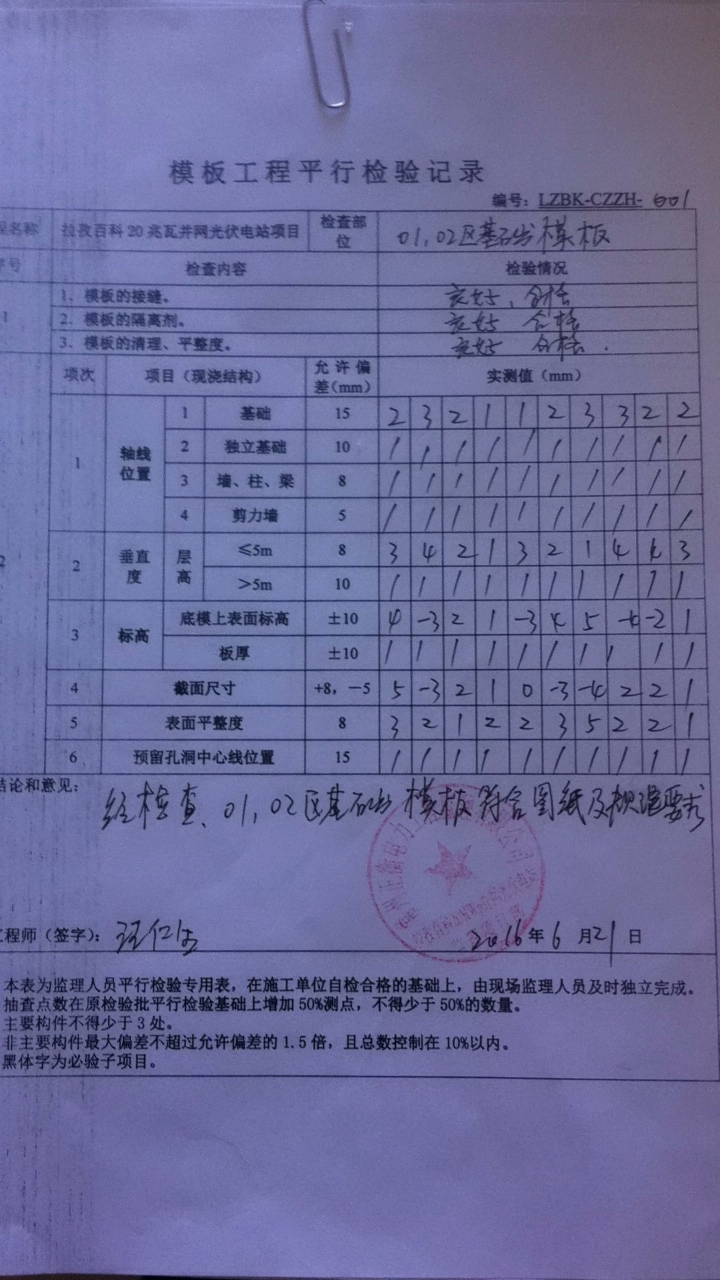 模板工程平行检验记录
编号：LZBK-CZZH-001
程名称 拉孜百科20兆瓦并网光伏电站项目 检查部位 01,02区基础模板
序号 检查内容 检验情况
1 1、模板的接缝。 良好，合格
2、模板的隔离剂。 良好 合格
3、模板的清理、平整度。 良好 合格.
2 项次 项目（现浇结构） 允许偏差(mm) 实测值（mm）
1 轴线位置 1 基础 15 2 3 2 1 1 2 3 3 2 2
2 独立基础 10 / / / / / / / / / /
3 墙、柱、梁 8 / / / / / / / / / /
4 剪力墙 5 / / / / / / / / / /
2 垂直度 层高 ≤5m 8 3 4 2 1 3 2 1 4 4 3
>5m 10 / / / / / / / / / /
3 标高 底模上表面标高 ±10 4 -3 2 1 -3 4 5 -4 -2 1
板厚 ±10 / / / / / / / / / /
4 截面尺寸 +8，－5 5 -3 2 1 0 -3 -4 2 2 1
5 表面平整度 8 3 2 1 2 2 3 5 2 2 1
6 预留孔洞中心线位置 15 / / / / / / / / / /
结论和意见：
经检查、01,02区基础模板符合图纸及规范要求
工程师（签字）： 2016年6月21日
本表为监理人员平行检验专用表，在施工单位自检合格的基础上，由现场监理人员及时独立完成。
抽查点数在原检验批平行检验基础上增加50%测点，不得少于50%的数量。
主要构件不得少于3处。
非主要构件最大偏差不超过允许偏差的1.5倍，且总数控制在10%以内。
黑体字为必验子项目。